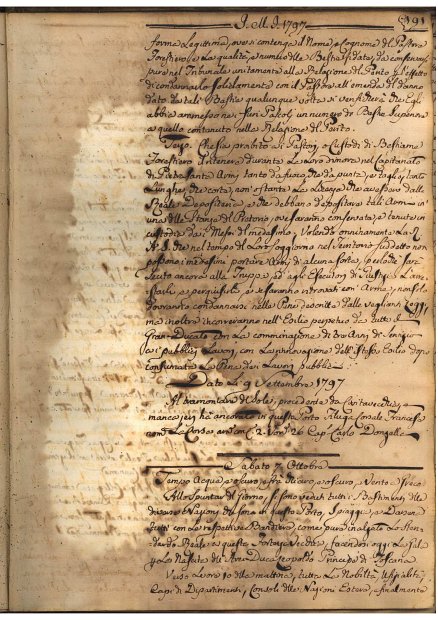 A. M. 1797 191
forma Legittima, ove si contenga il Nome, e Cognome del Pastore
Forestiero, e La qualità, e numero delle Bestie fidate, da
nel Tribunale unitamente alla Relazione del Perito, per l'effetto
di condannarlo solidalmente con il Pastore all'emenda del danno
dato da tali Bestie qualunque volta si verificherà che Egli
abbia ammesso ne' suoi Pascoli un numero di Bestie superiore
a quello contenuto nella Relazione del Perito.
Terzo. Che sia proibito ai Pastori, e Custodi di Bestiame
Forestiero di ritenere durante La Loro dimora nel Capitanato
di Pietra Santa Armi tanto da fuoco, che da punta, e taglio, tanto
Lunghe, che corte, non ostante La Licenza che avessero dalle
Reale Depositerie, e che debbano depositare tali Armi in
una delle Stanze del Pretorio, ove saranno conservate, e tenute in
custodia dai Messi del medesimo, Volendo onninamente La R.
A. S. che nel tempo del Loro soggiorno nel Territorio suddetto non
possano i medesimi portare Armi di alcuna sorta, per lo che sarà
ai Truppa, ed agli Esecutori di Giustizia
e perquisirli, e se saranno ritrovati con Armi, non solo
dovranno condannarsi nelle Pene prescritte dalle veglianti Leggi
ma inoltre incorreranno nell'Esilio perpetuo da tutto il
Gran Ducato con La comminazione di tre Anni di servizio
ai pubblici Lavori, con La rinnovazione dell'istesso Esilio dopo
consumata La Pena dei Lavori pubblici.
Dato Li 9 Settembre 1797
Al tramontare del Sole, procedente da Civitavecchia,
manca jeri ha ancorato in questo Porto Filuga Corsale Francese
con 2. Uom. 26 Cap. Carlo
Sabato 7. Ottobre
Tempo Acqua, e oscuro, e frà chiaro, e oscuro, Vento e fresco
Allo Spuntar del Giorno, si sono veduti tutti i Bastimenti delle
diverse Nazioni che sono in questo Porto, Spiaggia, e Darsena
tutti con Le rispettive Bandiere come pure inalzato Lo Sten-
dardo Reale a questa Fortezza Vecchia, facendosi oggi La Gala
per La Nascita dell'Arci Duca Leopoldo Principe di Toscana
Verso Le ore 10 della mattina, tutta La Nobiltà, Ufizialità,
Capi di Dipartimenti, Consoli delle Nazioni Estere, e finalmente